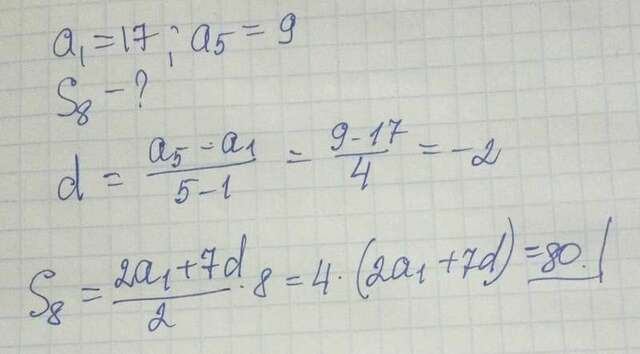 a₁ = 17; a₅ = 9
S₈ - ?
d = (a₅ - a₁)/(5 - 1) = (9 - 17)/4 = -2
S₈ = (2a₁ + 7d)/2 · 8 = 4 · (2a₁ + 7d) = 80.